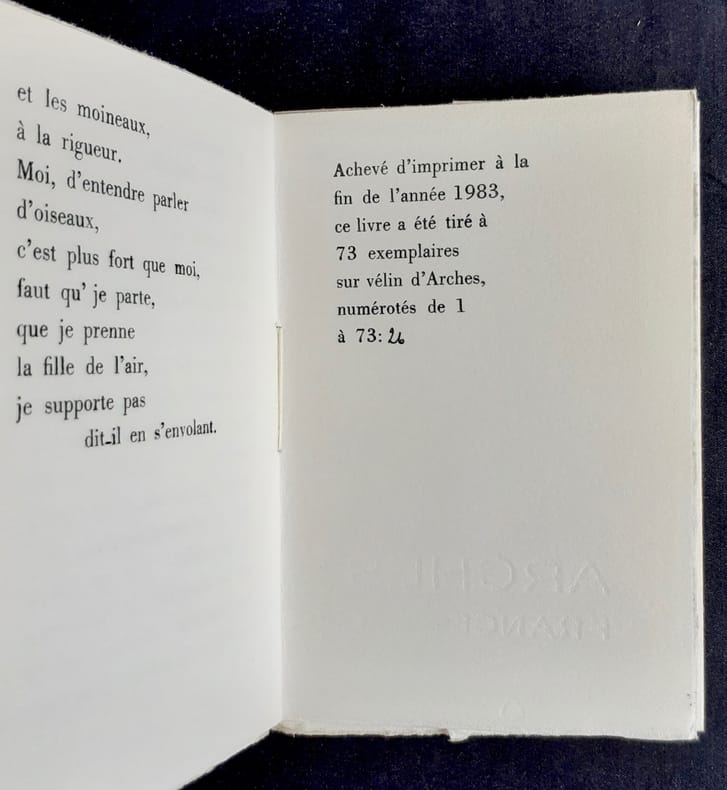 et les moineaux,
à la rigueur.
Moi, d'entendre parler
d'oiseaux,
c'est plus fort que moi,
faut qu' je parte,
que je prenne
la fille de l'air,
je supporte pas
dit-il en s'envolant.
Achevé d'imprimer à la
fin de l'année 1983,
ce livre a été tiré à
73 exemplaires
sur vélin d'Arches,
numérotés de 1
à 73: 26
ARCHES
FRANCE